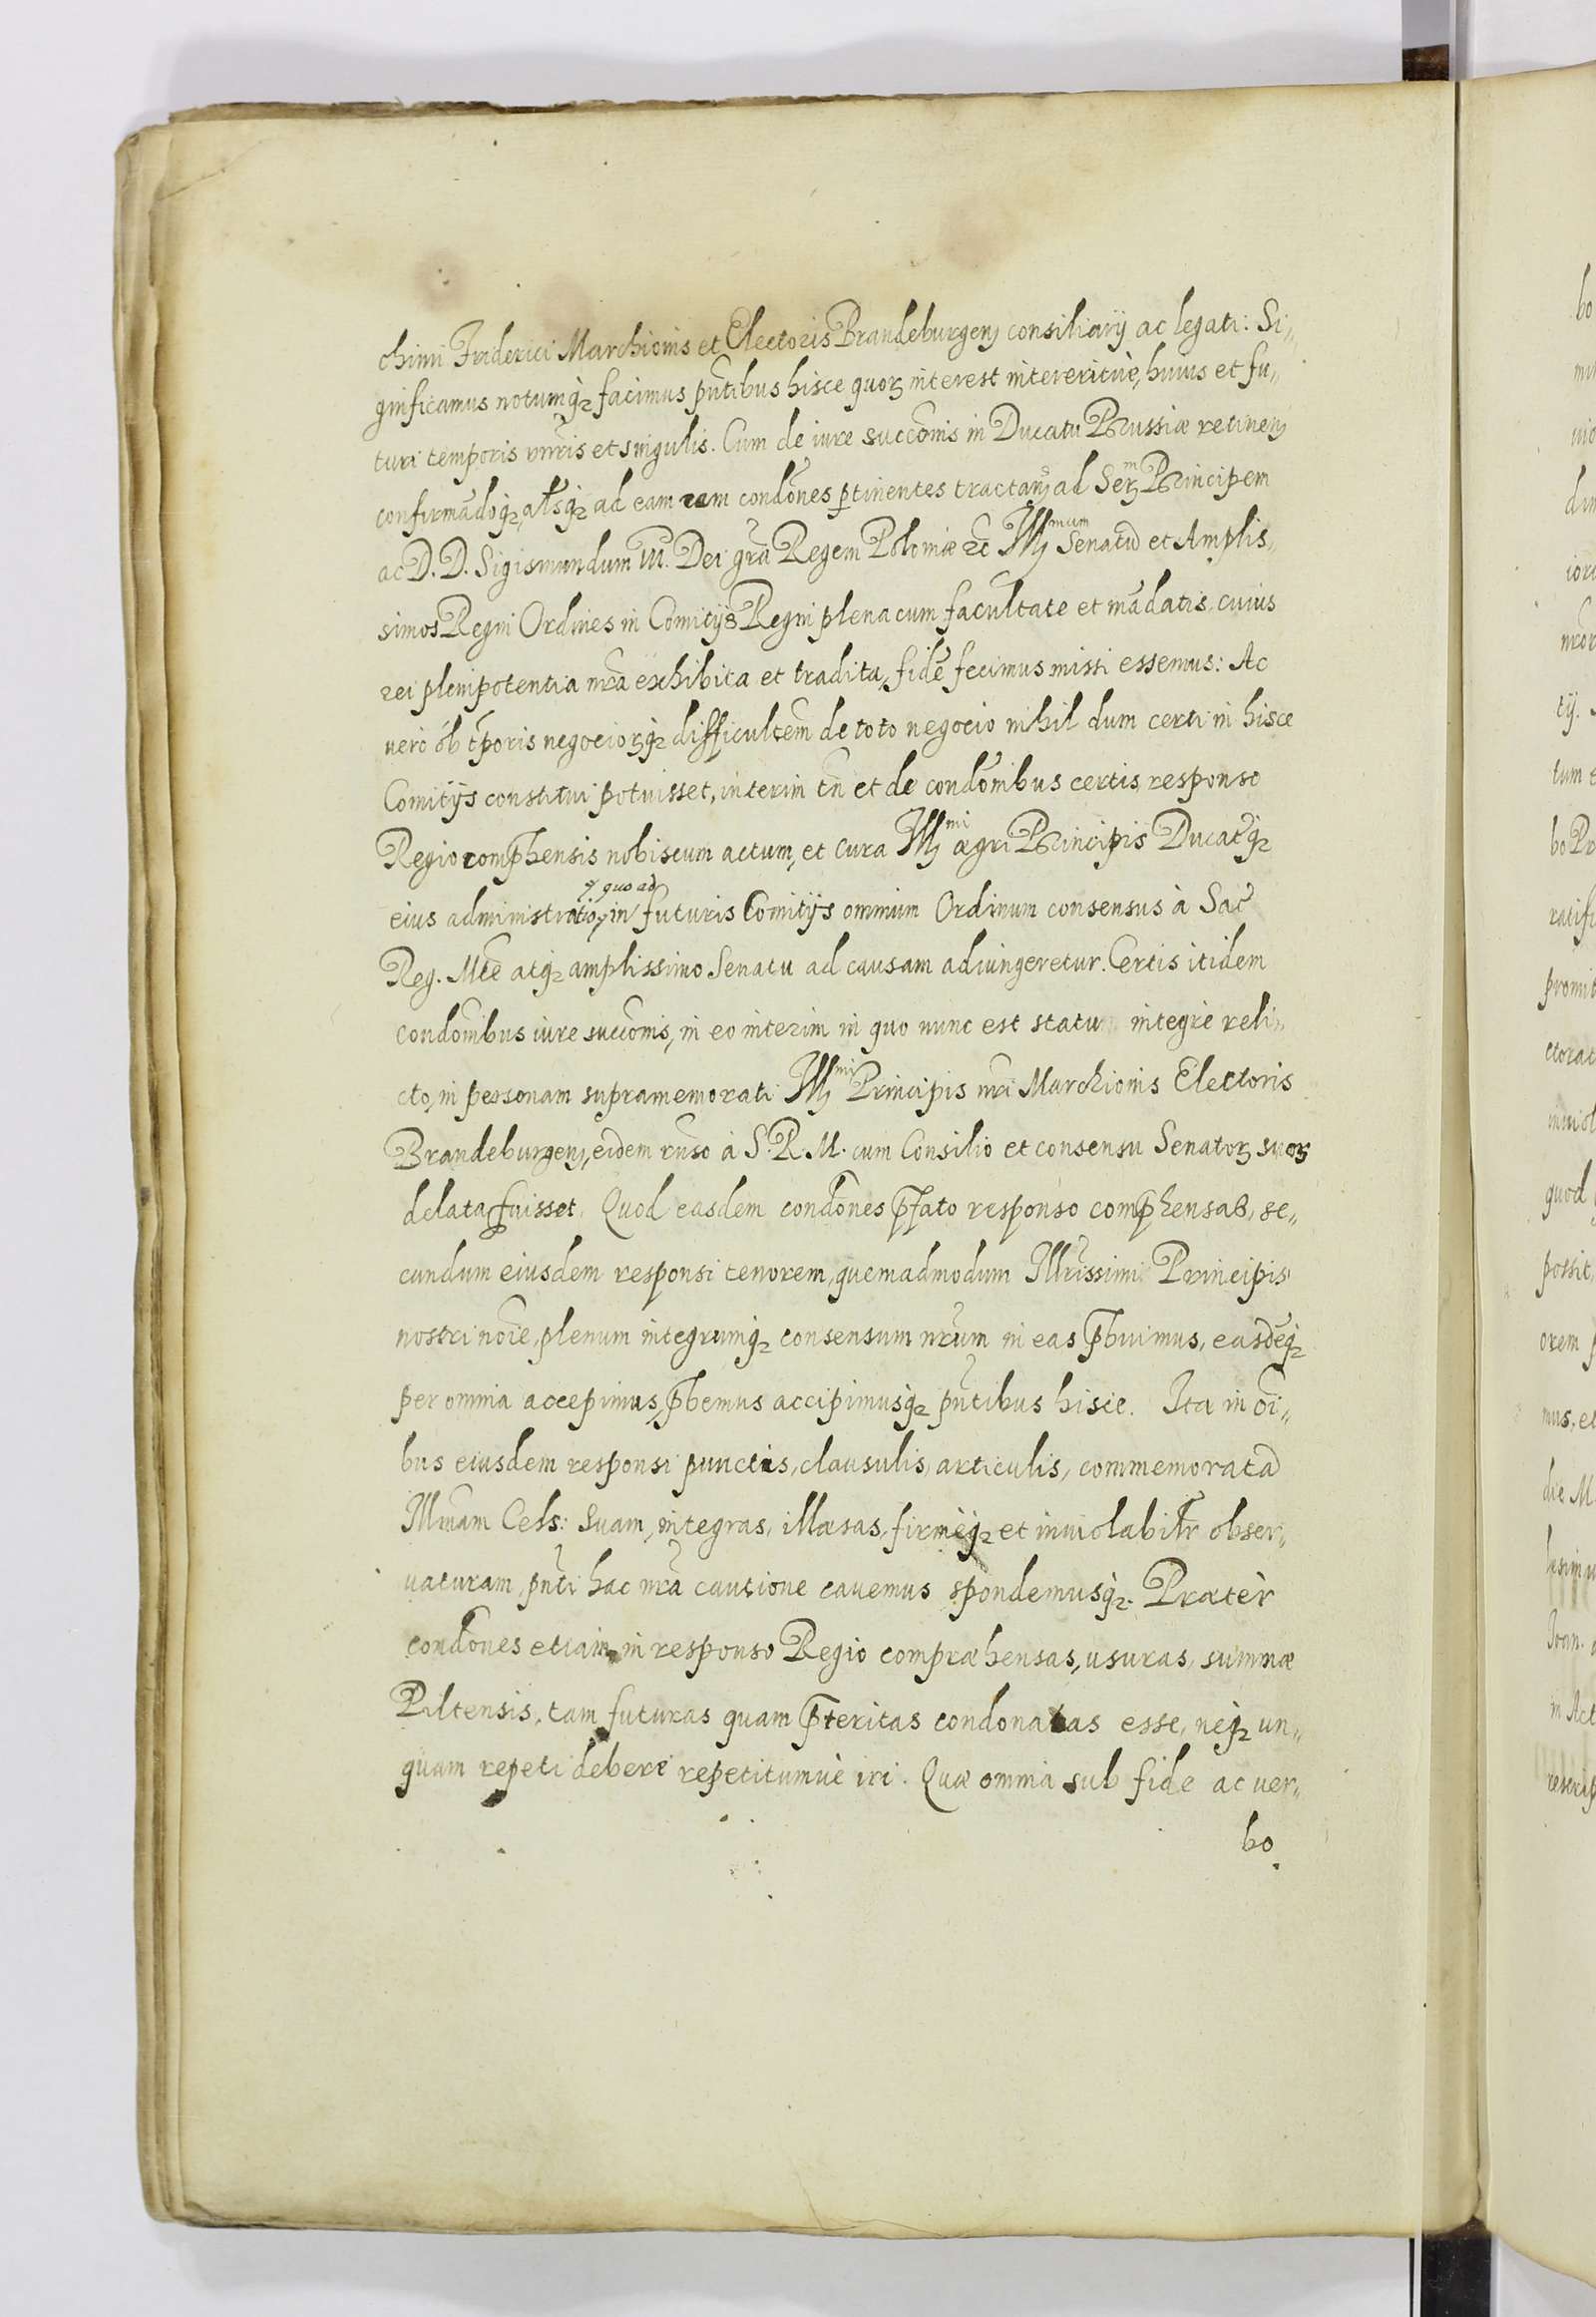 chimi Friderici Marchionis et Electoris Brandeburgen consiliarij ac legati: Si„
gnificamus notumq facimus pñtibus hisce quoꝝ interest intereritùe, huius et fu„
turi temporis vnĩris et singulis. Cum de iure succõnis in Ducatu Prussiæ retinen
confirmãdoq, alÿsq ad eam rem condõnes ptinentes tractan ad Ser^m Principem
ac D. D. Sigismundum III. Dei grã Regem Poloniæ ꝛc Ill^mum Senatũ et Amplis„
simos Regni Ordines in Comitijs Regni plena cum facultate et mãdatis, cuius
rei plenipotentia nrã exhibita et tradita, fidẽ fecimus missi essemus: Ac
uerò ob tp̃oris negocioꝝq difficultẽm de toto negocio nihil dum certi in hisce
Comitijs constitui potuisset, interim tñ et de condõnibus certis, responso
Regio comp̃hensis nobiscum actum, et cura Ill^mi ægri Principis Ducatq̃
quo ad
eius administratio, in futuris Comitijs omnium Ordinum consensus à Sac̃
Reg. Mtẽ atq amplissimo Senatu ad causam adiungeretur. Certis itidem
condõnibus iure succõnis, in eo interim in quo nunc est statu integrè reli„
cto, in personam supramemorati Ill^mi Principis nrĩ Marchionis Electoris
Brandeburgen, eidem rũso à S. R. M. cum Consilio et consensu Senatoꝝ suoꝝ
delata fuisset. Quod easdem condõnes p̃fato responso comp̃hensas, se„
cundum eiusdem responsi tenorem, quemadmodum Illrĩssimi Principis
nostri noĩe, plenum integrumq consensum nrũm in eas p̃buimus, easdẽq
per omnia accepimus, p̃bemus accipimusq pñtibus hisce. Ita in oĩ„
bus eiusdem responsi punctis, clausulis, articulis, commemoratã
Illmãm Cels: Suam, integras, illæsas, firmèq et inuiolabilr̃ obser„
uaturam, pñti hac nrã cautione cauemus spondemusq. Præter
condõnes etiam in responso Regio compræhensas, usuras, summæ
Piltensis, tam futuras quam p̃teritas condonatas esse, neq un„
quam repeti debere repetitumuè iri. Quæ omnia sub fide ac uer„
bo